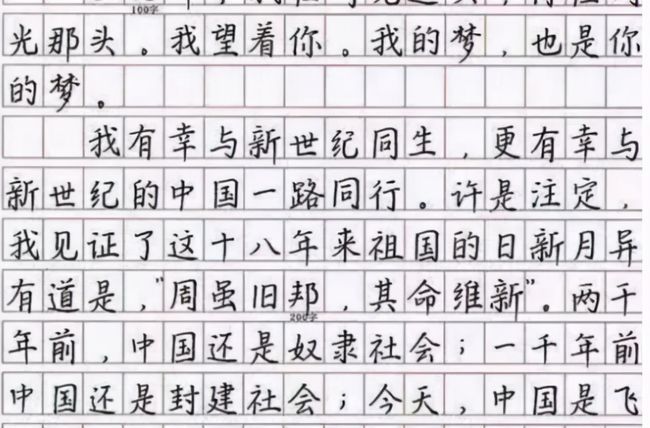 100字
光那头。我望着你。我的梦，也是你
的梦。
我有幸与新世纪同生，更有幸与
新世纪的中国一路同行。许是注定，
我见证了这十八年来祖国的日新月异
有道是，"周虽旧邦，其命维新"。两千
200字
年前，中国还是奴隶社会；一千年前
中国还是封建社会；今天，中国是飞